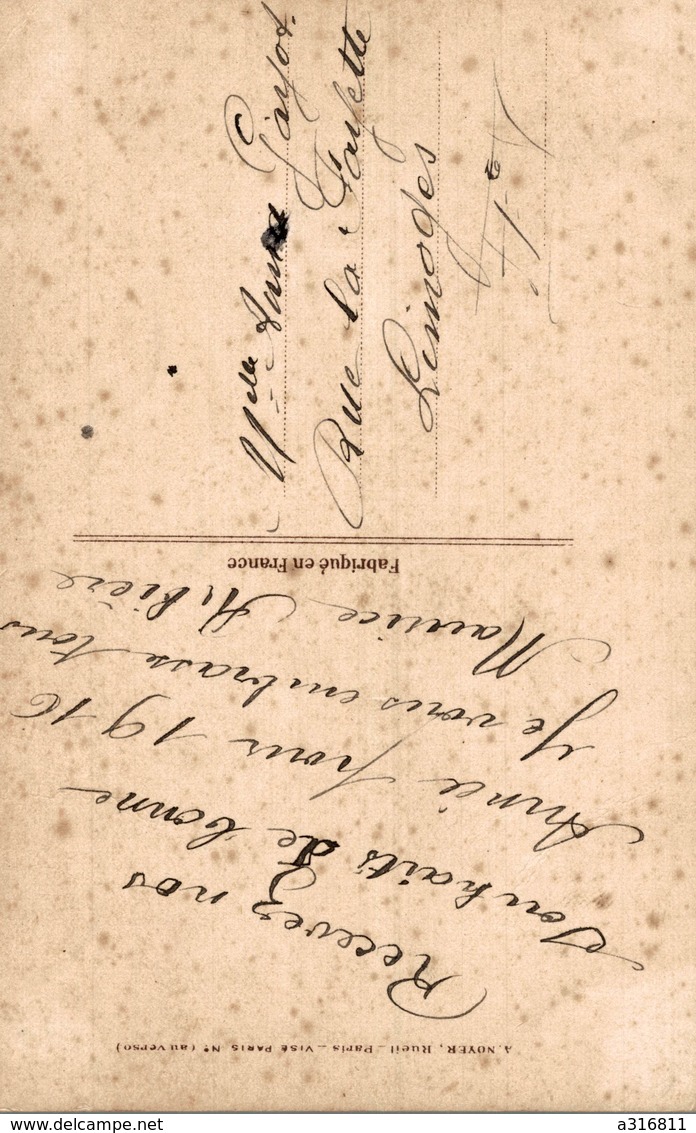 Recevez nos
Souhaits de bonne
Année pour 1916
Je vous embrasse tous
Maurice Ribière
Fabriqué en France
A. NOYER, Rueil - Paris - VISÉ PARIS N° (au verso)
Melle Anna Gayot
Rue La Fayette
Limoges
www.delcampe.net
a316811